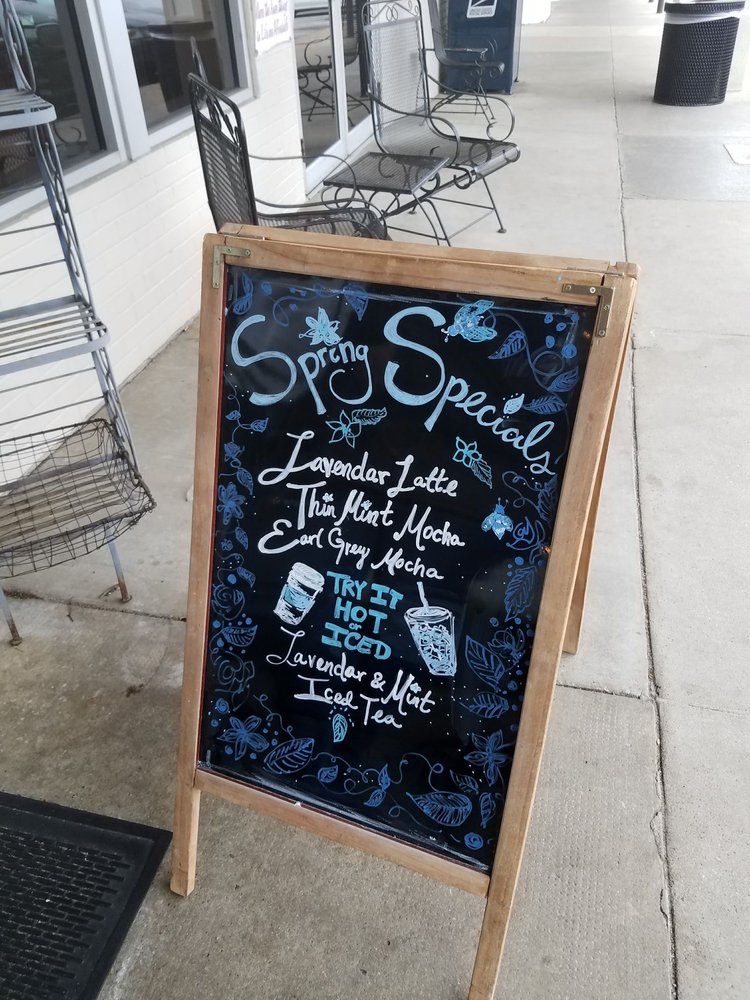 Spring Specials
Lavendar Latte
Thin Mint Mocha
Earl Grey Mocha
TRY IT
HOT
or
ICED
Lavendar & Mint
Iced Tea